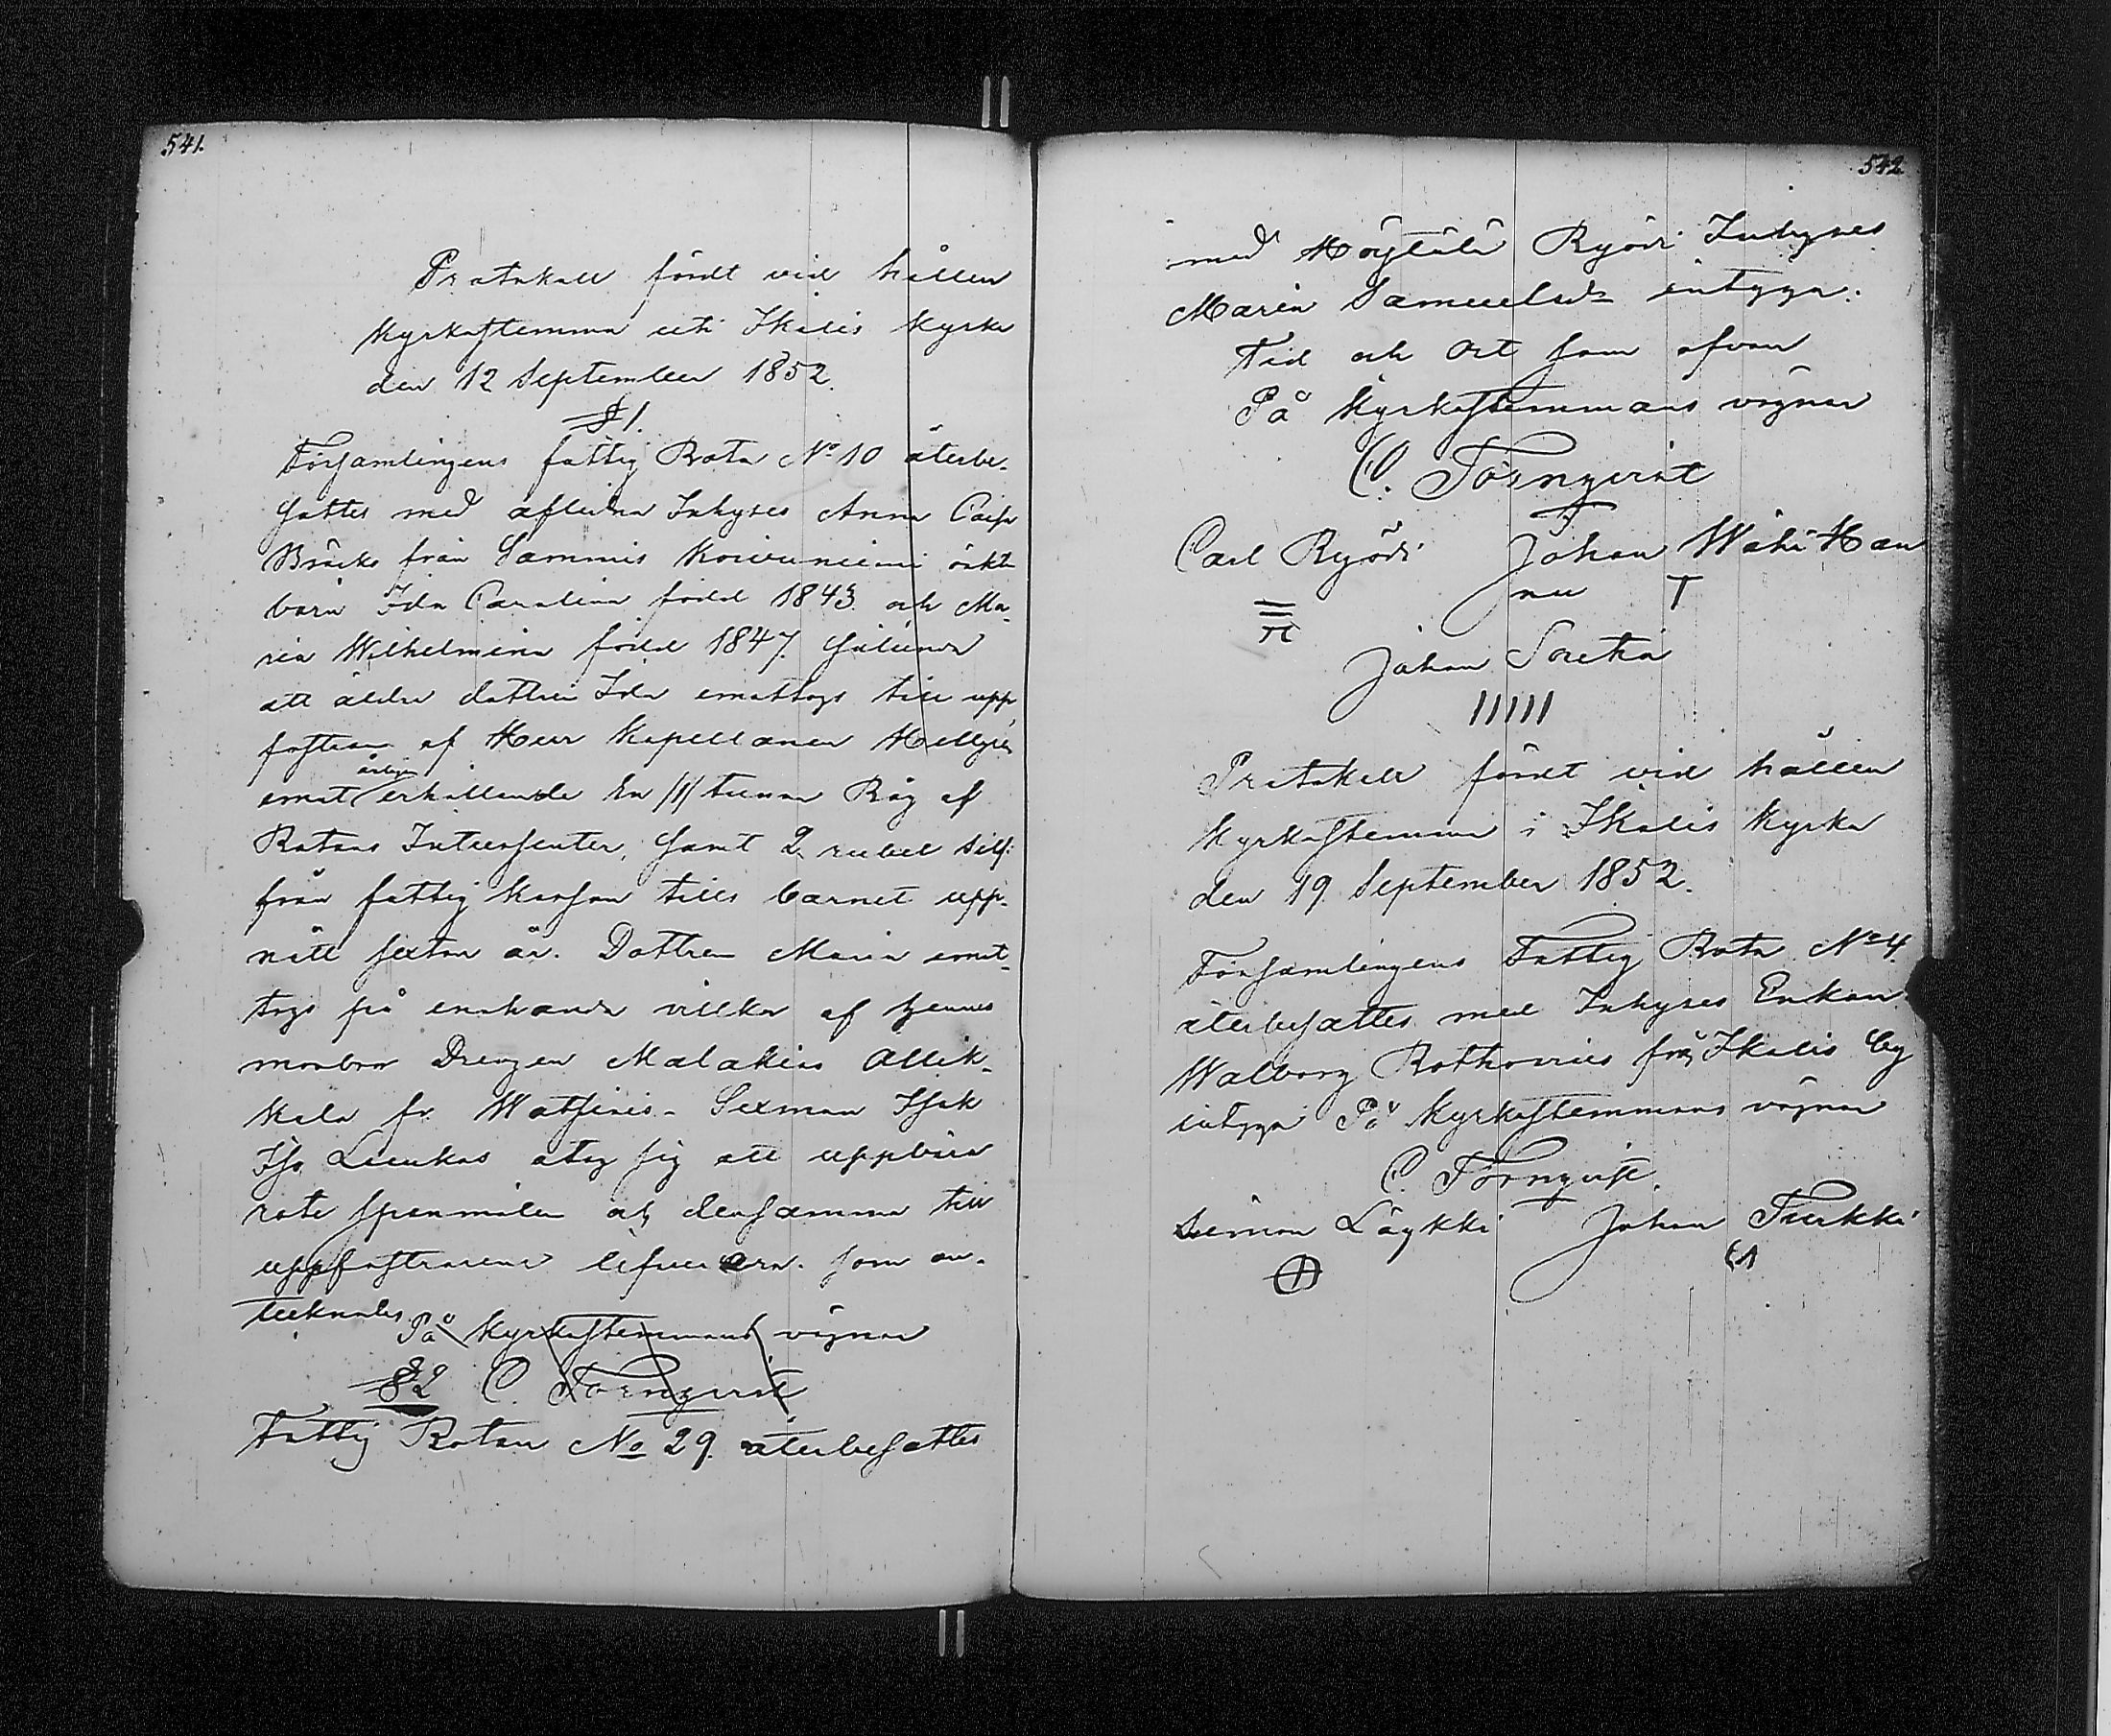 541.
Protokoll fördt vid hållen
Kyrkostemma uti Ikalis Kyrka
den 12 September 1852.
§ 1.
Församlingens fattig Rota No 10 återbe-
sattes med aflidna Inhyses Anna Caisa
Bräcks från Sammis Koivuniemi oäkta
barn Ida Carolina född 1843. och Ma-
ria Wilhelmina född 1847.
att äldre dottren Ida emottogs till upp
fostran af Herr Kapellanen Hellgrén
emot årligen erhållande En /1/ tunna Råg af
Rotans Intressenter, samt 2 rubel Silf:
från fattig Kassan tills barnet upp-
nått sexton år. Dottren Maria emot-
togs på enahanda villkor af hennes
morbror Drengen Malakias Ollik-
kala fr. Watsiais. Sexman Isak
Iso Luukas åtog sig att uppbära
rote spanmålen och densamma till
uppfostrarene lefverera. som an-
tecknades
På Kyrkostemmans vägnar
§ 2 C. Törnqvist
Fattig Rotan No 29. återbesattes
542
med Höytölä Ryödi Inhyses
Maria Samuelsdr intyga.
Tid och Ort som ofvan
På Kyrkostemmans vägnar
C. Törnqvist
Carl Ryödi Johan Wähä Han
nu T
Johan Soutia
Protokoll fördt vid hållen
Kyrkostemma i Ikalis Kyrka
den 19 September 1852.
Församlingens Fattig Rota No 4.
återbesattes med Inhyses Enkan
Walborg Rothovius från Ikalis by
intyga På Kyrkostemmans vägnar
C. Törnqvist.
Simon Läykki Johan Turkki